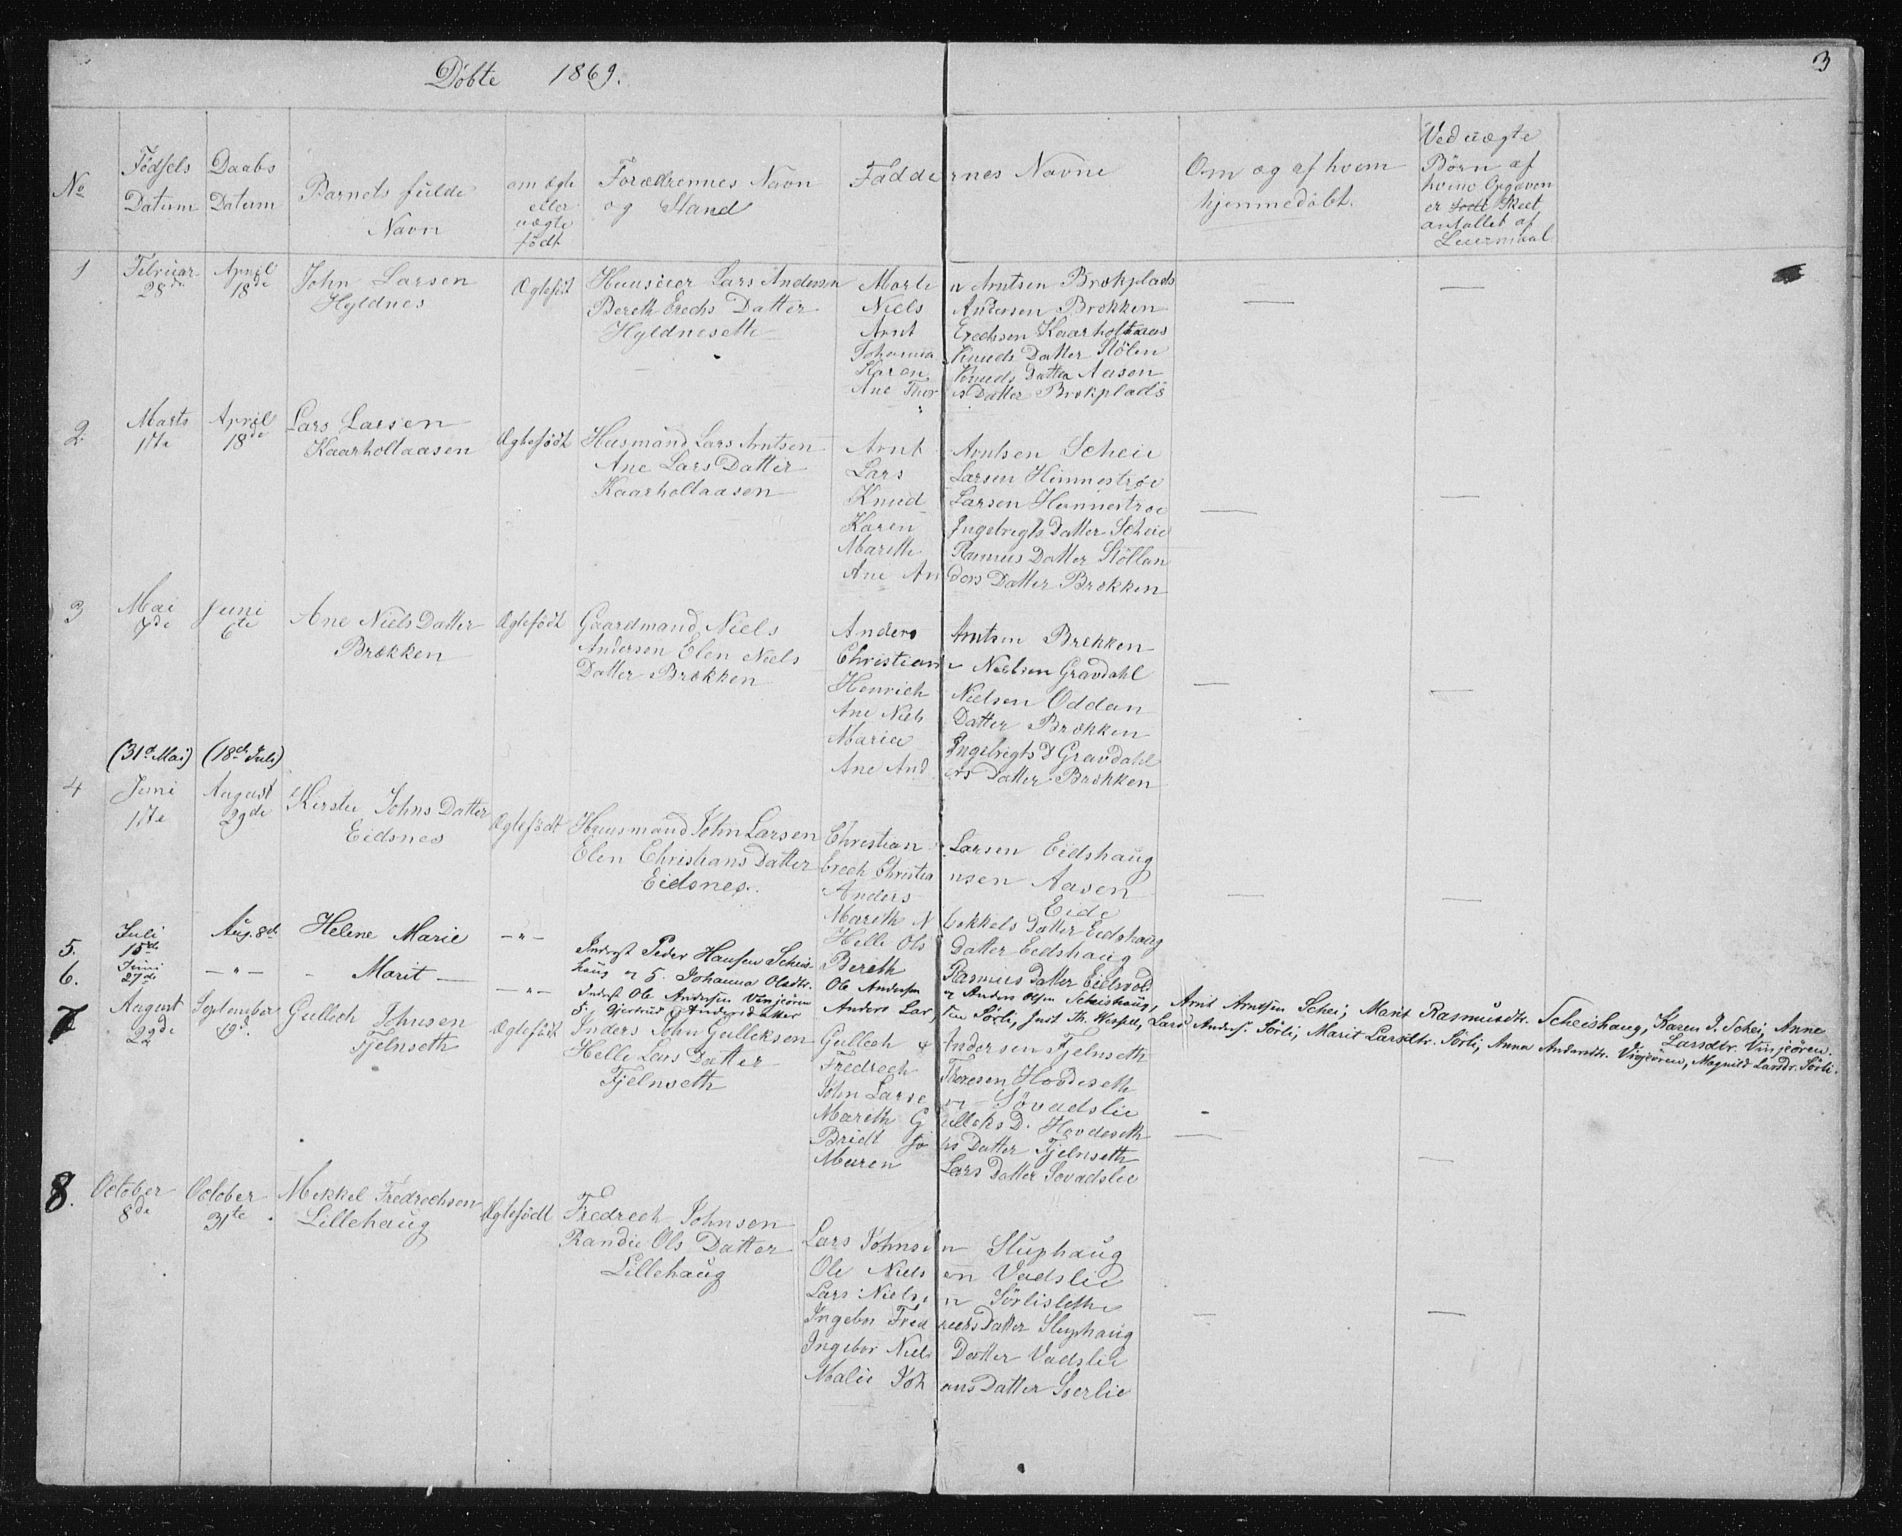 Döbte 1869.
3
No
Födsels Datum
Daabs Datum
Barnets fulde Navn
om ægte eller uægte födt
Forældrennes Navn og Stand
Faddernes Navne
Om og af hvem hjemmedöbt.
Ved uægte Börn af hvem Opgaven er skeet antallet af Leiermaal
1
Februar 28de
April 18de
John Larsen
Hyldnes
Ægtefödt
Huuseier Lars Andersen
Bereth Erechs Datter
Hyldneseth
Morten Arntsen Brækplads
Niels Andersen Brækken
Arnt Erechsen Kaarholtaaas
Johanna Knuds Datter Stölen
Karen Knuds Datter Aasen
Ane Thores Datter Brækplads
2
Marts 17de
April 18de
Lars Larsen
Kaarholtaasen
Ægtefödt
Husmand Lars Arntsen
Ane Lars Datter
Kaarholtaasen
Arnt Arntsen Scheie
Lars Larsen Himnestrøe
Knud Larsen Hemnestrøe
Karen Ingebregts Datter Scheie
Mareth Rasmus Datter Stöllan
Ane Anders Datter Brækken
3
Mai 7de
Juni 6te
Ane Niels Datter
Brækken
Ægtefödt
Gaardmand Niels
Andersen Elen Niels
Datter Brækken
Anders Arntsen Brækken
Christian Neelsen Gravdahl
Henrich Nielsen Oddan
Ane Niels Datter Brækken
Maria Ingebregts D Gravdahl
Ane Anders Datter Brækken
(31d Mai) (18de Juli)
4
Juni 17de
August 29de
Kirstie Johns Datter
Eidsnes
Ægtefödt
Huusmand John Larsen
Elen Christians Datter
Eidsnes.
Christian Larsen Eidshaug
Erech Christiansen Aasen
Anders Eide
Mareth Mekkels Datter Eidshaug
Helle Ols Datter Eidshaug
Bereth Rasmus Datter Eidsvold
5.
Juli 15de
Aug. 8de
Helene Marie
— " —
Inderst Peder Hansen Scheis-
haug og H. Johanna Olsdtr.
Ole Andersen og Anders Olsen Scheishaug, Arnt Arntsen Schei, Marit Rasmusdtr. Scheishaug, Karen I. Schei, Anne
Larsdtr. Vinjeören.
6.
Juni 27de
— " —
Marit —
— " —
Inderst Ole Andersen Vinjeören
H. Gjertrud Andersdatter
Anders Larsen Sörli, Just Th. Wessel, Lars Anders. Sörli, Marit Larsdtr. Sörli, Anna Andersdtr. Vinjeören, Magnild Larsdr. Sörli.
7
August 22de
September 19d.
Gulleck Johnsen
Fjelnseth
Ægtefödt
Inders John Gulleksen
Helle Lars Datter
Fjelnseth
Gulleck Andersen Fjelnseth
Fredrech Thoresen Hovdeseth
John Larsen Sövadslie
Mareth Gulleks D. Hovdeseth
Bridt Johns Datter Fjelnseth
Maren Lars Datter Sovadslie
8.
October 8de
October 31te
Mekkel Fredrechsen
Lillehaug
Ægtefödt
Fredrech Johnsen
Randie Ols Datter
Lillehaug
Lars Johnsen Sluphaug
Ole Nielsen Vadslie
Lars Nielsen Sörlisleth
Ingebor Fredrecks Datter Sluphaug
Ingebor Niels Datter Vadslie
Malie Johans Datter Soerlie